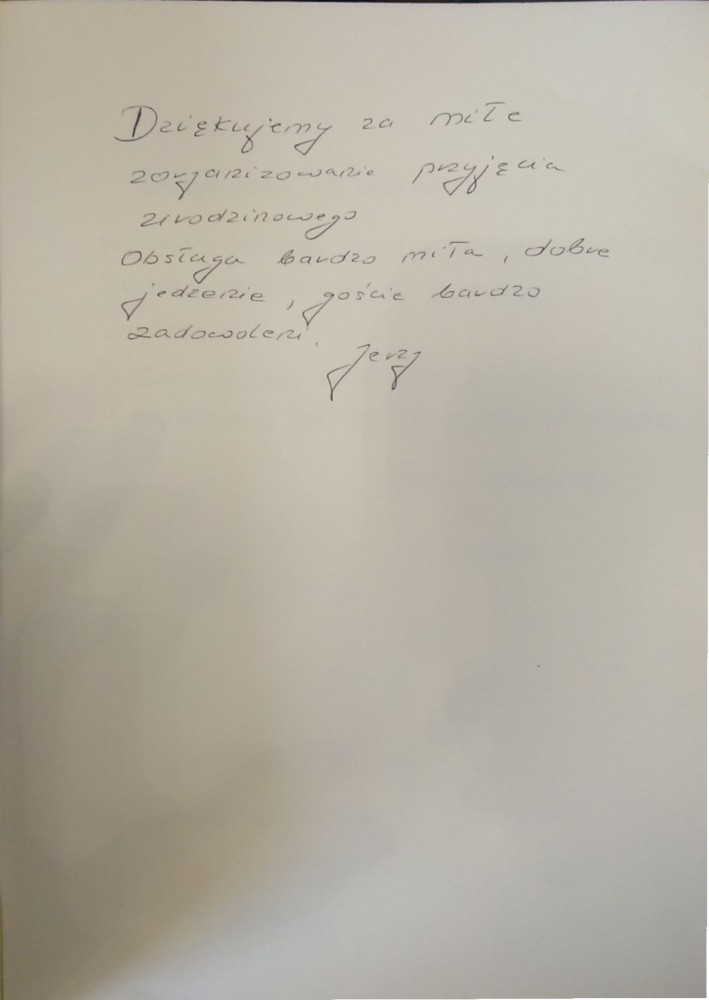 Dziękujemy za miłe
zorganizowanie przyjęcia
urodzinowego
Obsługa bardzo miła, dobre
jedzenie, goście bardzo
zadowoleni.
Jerzy